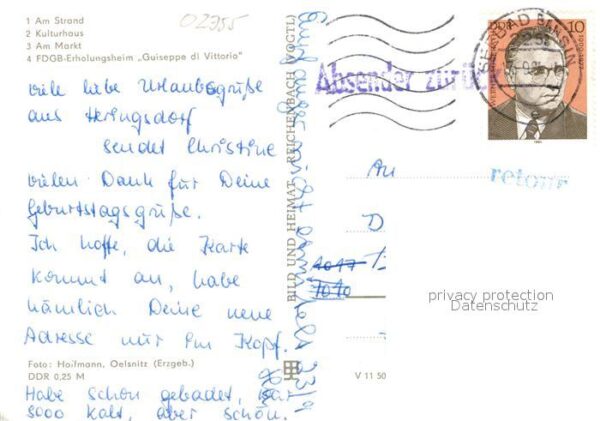 02755
1 Am Strand
2 Kulturhaus
3 Am Markt
4 FDGB-Erholungsheim „Guiseppe di Vittorio"
viele liebe Urlaubsgrüße
aus Heringsdorf
sendet Christine
vielen Dank für Deine
Geburtstagsgrüße.
Ich hoffe, die Karte
kommt an, habe
nämlich Deine neue
Adresse nur im Kopf.
Foto: Hoifmann, Oelsnitz (Erzgeb.)
DDR 0,25 M
Habe schon gebadet, war
sooo kalt, aber schön.
BILD UND HEIMAT REICHENBACH (VOGTL)
V 11 50
Absender zurück
SEEBAD BANSIN
DDR 10
1981
retour
An
D
1017
1020
privacy protection
Datenschutz